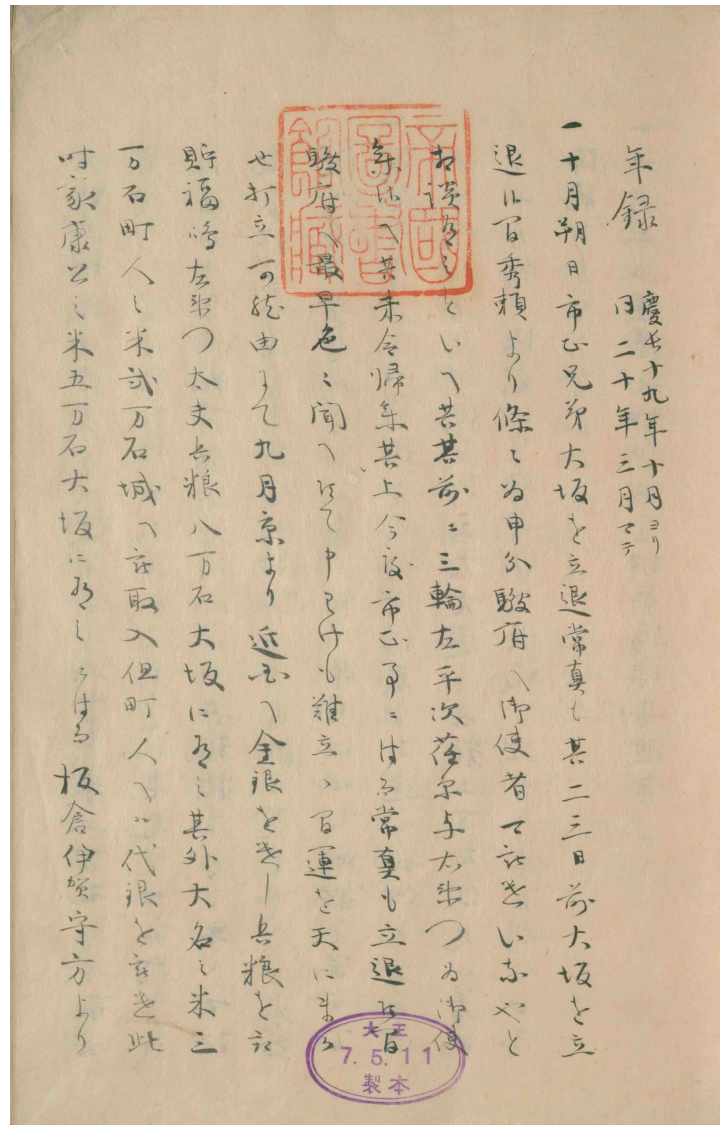 年録 慶長十九年十月ヨリ
同二十年三月マテ
一十月朔日市正兄弟大坂を立退常真も其二三日前大坂を立
退候間秀頼より條々為申分駿府へ御使者可被遣い哉やと
相談有之といへ共其前ニ三輪左平次荏尓与左衛門為御使
参候へ共未令帰参其上今度市正事ニ付而常真も立退候間
駿府へ最早色々聞へ候て申わけも難立候間運を天にまかせ
打立可然由にて九月京より近国へ金銀を遣し兵粮を
貯福嶋左衛門太夫兵粮八万石大坂に有之其外大名之米三
万石町人之米弐万石城へ被取入但町人へハ代銀を被遣此
時家康公之米五万石大坂に有之に付而板倉伊賀守方より
帝国図書館蔵
大正
7.5.11
製本